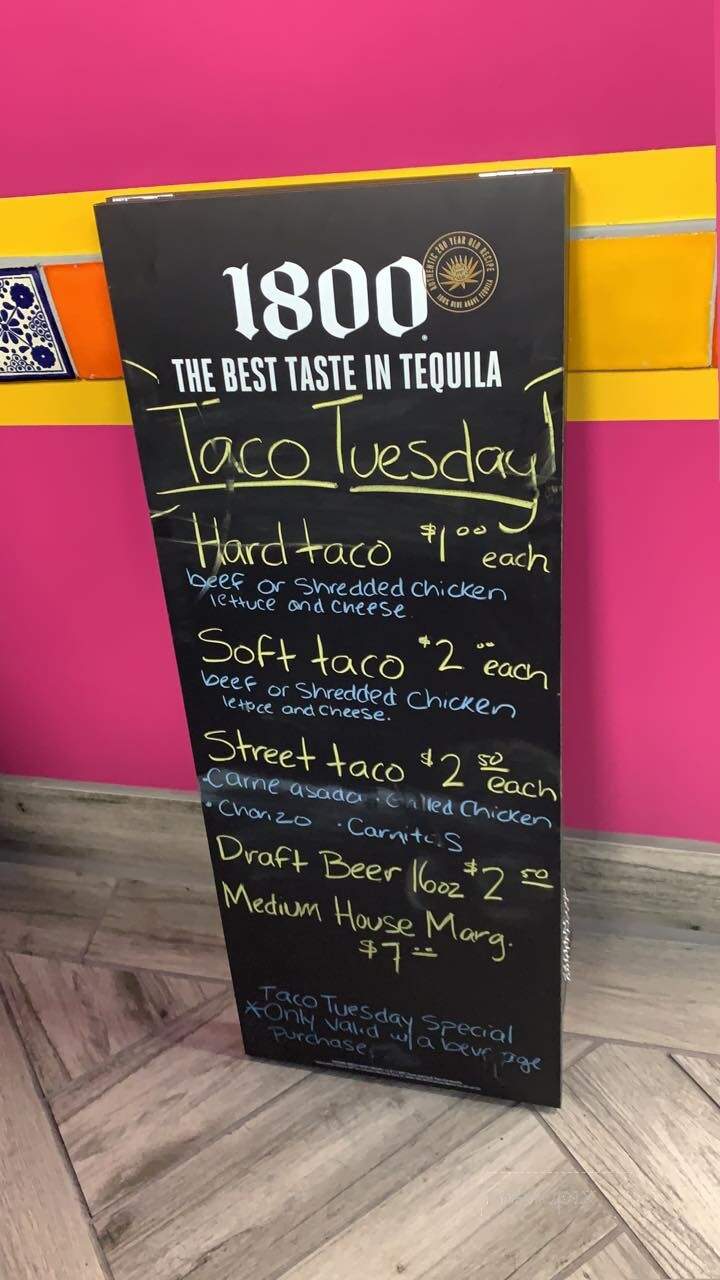 1800
AUTHENTIC 200 YEAR OLD RECIPE
100% BLUE AGAVE TEQUILA
THE BEST TASTE IN TEQUILA
Taco Tuesday!
Hard taco $1.00 each
beef or Shredded Chicken
lettuce and cheese
Soft taco $2.00 each
beef or Shredded Chicken
lettuce and Cheese.
Street taco $2.50 each
·Carne asada · Chicken
·Chorizo ·Carnitas
Draft Beer 16oz $2.50
Medium House Marg.
$7.00
Taco Tuesday Special
*Only valid w/ a beverage
Purchase